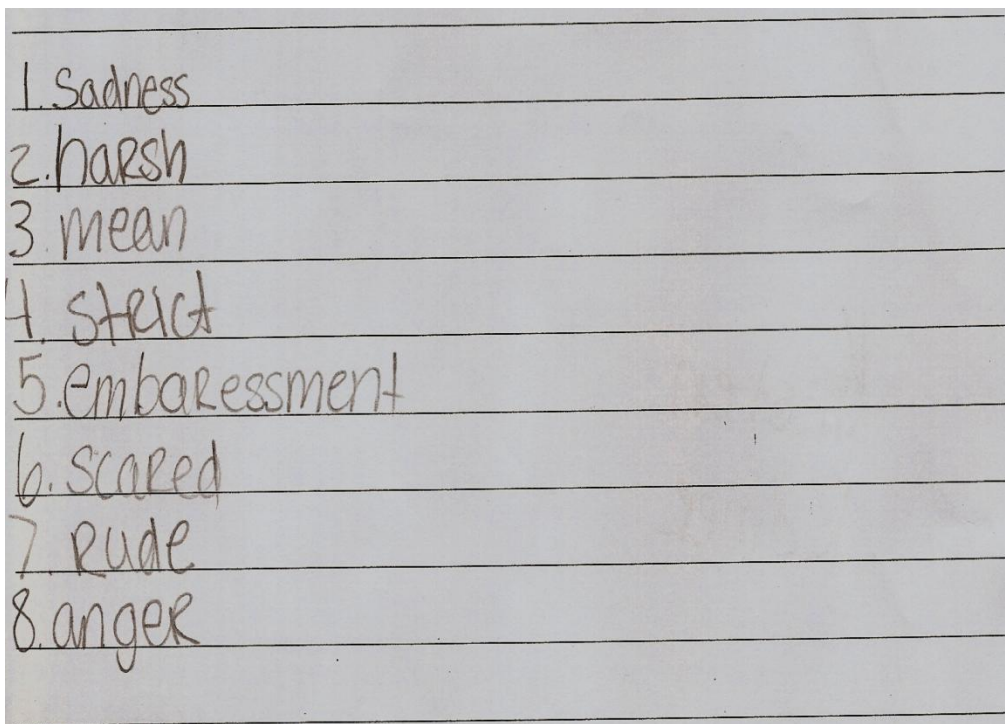 1. Sadness
2. harsh
3. mean
4. strict
5. embaressment
6. scared
7. Rude
8. anger